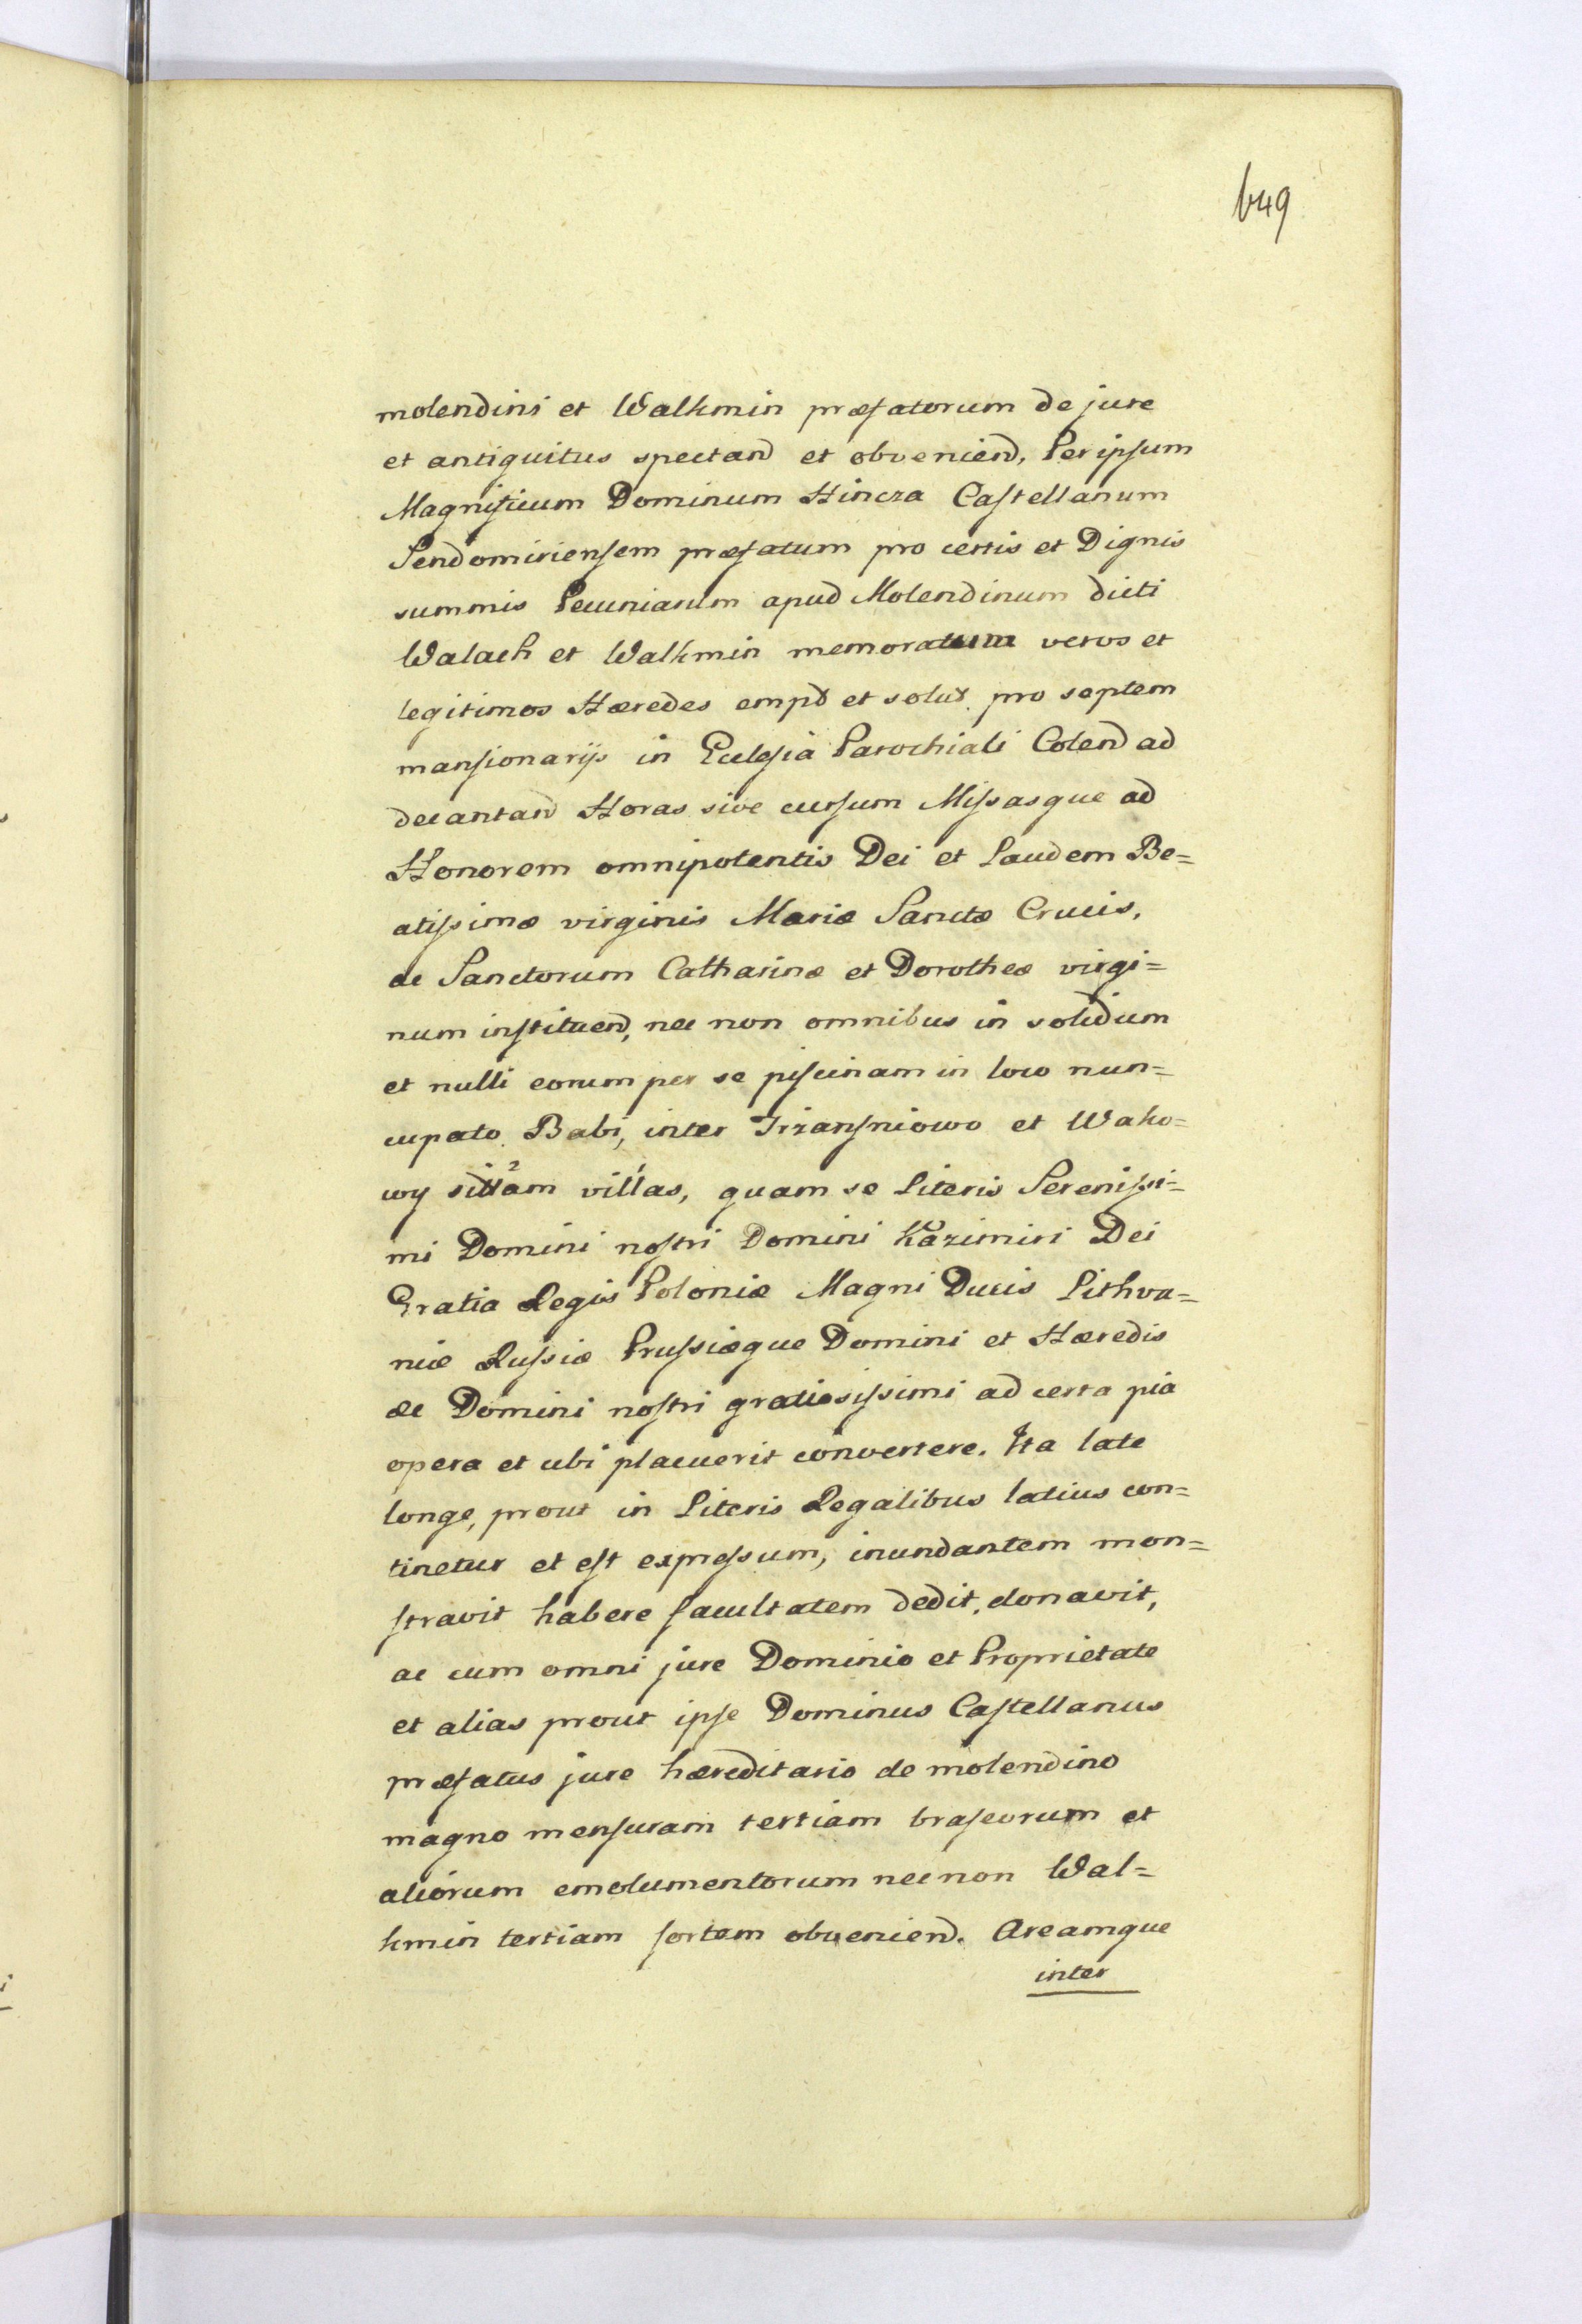 649
molendini et Walkmin præfatorum de jure
et antiquitus spectand et obveniend, Per ipsum
Magnificum Dominum Hincza Castellanum
Sendomiriensem præfatum pro certis et Dignis
summis Pecuniarum apud Molendinum dicti
Walach et Walkmin memoratum veros et
legitimos Hæredes empt et solut. pro septem
mansionarijs in Ecclesia Parochiali Colend ad
decantand Horas sive cursum Missasque ad
Honorem omnipotentis Dei et Laudem Be=
atissimæ virginis Mariæ Sanctæ Crucis,
ac Sanctorum Catharinæ et Dorotheæ virgi=
num instituend, nec non omnibus in solidum
et nulli eorum per se piscinam in loco nun=
cupato Babi, inter Trzansniowo et Wako=
wy sittam villas, quam se Literis Serenissi=
mi Domini nostri Domini Kazimiri Dei
Gratia Regis Poloniæ Magni Ducis Lithva=
niæ Russiæ Prussiæque Domini et Hæredis
ac Domini nostri gratiosissimi ad certa pia
opera et ubi placuerit convertere. Ita late
longe, prout in Literis Regalibus latius con=
tinetur et est expressum, inundantem mon=
stravit habere facultatem dedit, donavit,
ac cum omni jure Dominio et Proprietate
et alias prout ipse Dominus Castellanus
præfatus jure hæreditario de molendino
magno mensuram tertiam braseorum et
aliorum emolumentorum necnon Wal=
kmin tertiam sortem obveniend. Areamque
inter